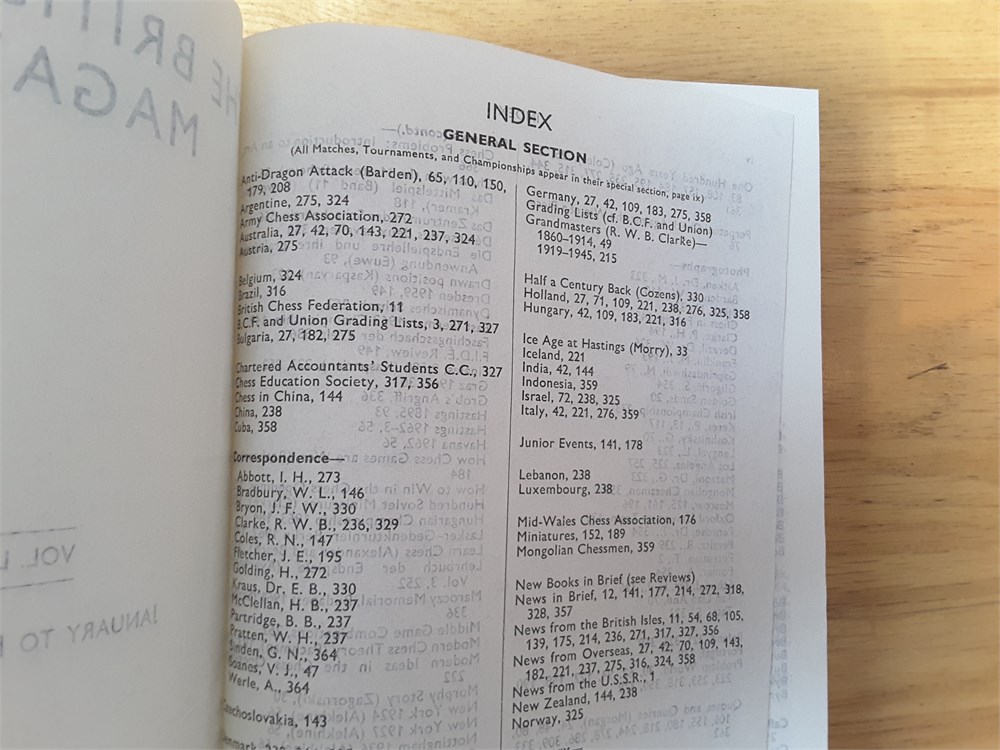 THE BRITIS
MAGA
VOL. L
JANUARY TO
INDEX
GENERAL SECTION
(All Matches, Tournaments, and Championships appear in their special section, page ix)
Anti-Dragon Attack (Barden), 65, 110, 150,
179, 208
Argentine, 275, 324
Army Chess Association, 272
Australia, 27, 42, 70, 143, 221, 237, 324
Austria, 275
Belgium, 324
Brazil, 316
British Chess Federation, 11
B.C.F. and Union Grading Lists, 3, 271, 327
Bulgaria, 27, 182, 275
Chartered Accountants' Students C.C., 327
Chess Education Society, 317, 356
Chess in China, 144
China, 238
Cuba, 358
Correspondence—
Abbott, I. H., 273
Bradbury, W. L., 146
Bryon, J. F. W., 330
Clarke, R. W. B., 236, 329
Coles, R. N., 147
Fletcher, J. E., 195
Golding, H., 272
Kraus, Dr. E. B., 330
McClellan, H. B., 237
Partridge, B. B., 237
Pratten, W. H., 237
Sinden, G. N., 364
Soanes, V. J., 47
Werle, A., 364
Czechoslovakia, 143
Germany, 27, 42, 109, 183, 275, 358
Grading Lists (cf. B.C.F. and Union)
Grandmasters (R. W. B. Clarke)—
1860–1914, 49
1919–1945, 215
Half a Century Back (Cozens), 330
Holland, 27, 71, 109, 221, 238, 276, 325, 358
Hungary, 42, 109, 183, 221, 316
Ice Age at Hastings (Morry), 33
Iceland, 221
India, 42, 144
Indonesia, 359
Israel, 72, 238, 325
Italy, 42, 221, 276, 359
Junior Events, 141, 178
Lebanon, 238
Luxembourg, 238
Mid-Wales Chess Association, 176
Miniatures, 152, 189
Mongolian Chessmen, 359
New Books in Brief (see Reviews)
News in Brief, 12, 141, 177, 214, 272, 318,
328, 357
News from the British Isles, 11, 54, 68, 105,
139, 175, 214, 236, 271, 317, 327, 356
News from Overseas, 27, 42, 70, 109, 143,
182, 221, 237, 275, 316, 324, 358
News from the U.S.S.R., 1
New Zealand, 144, 238
Norway, 325